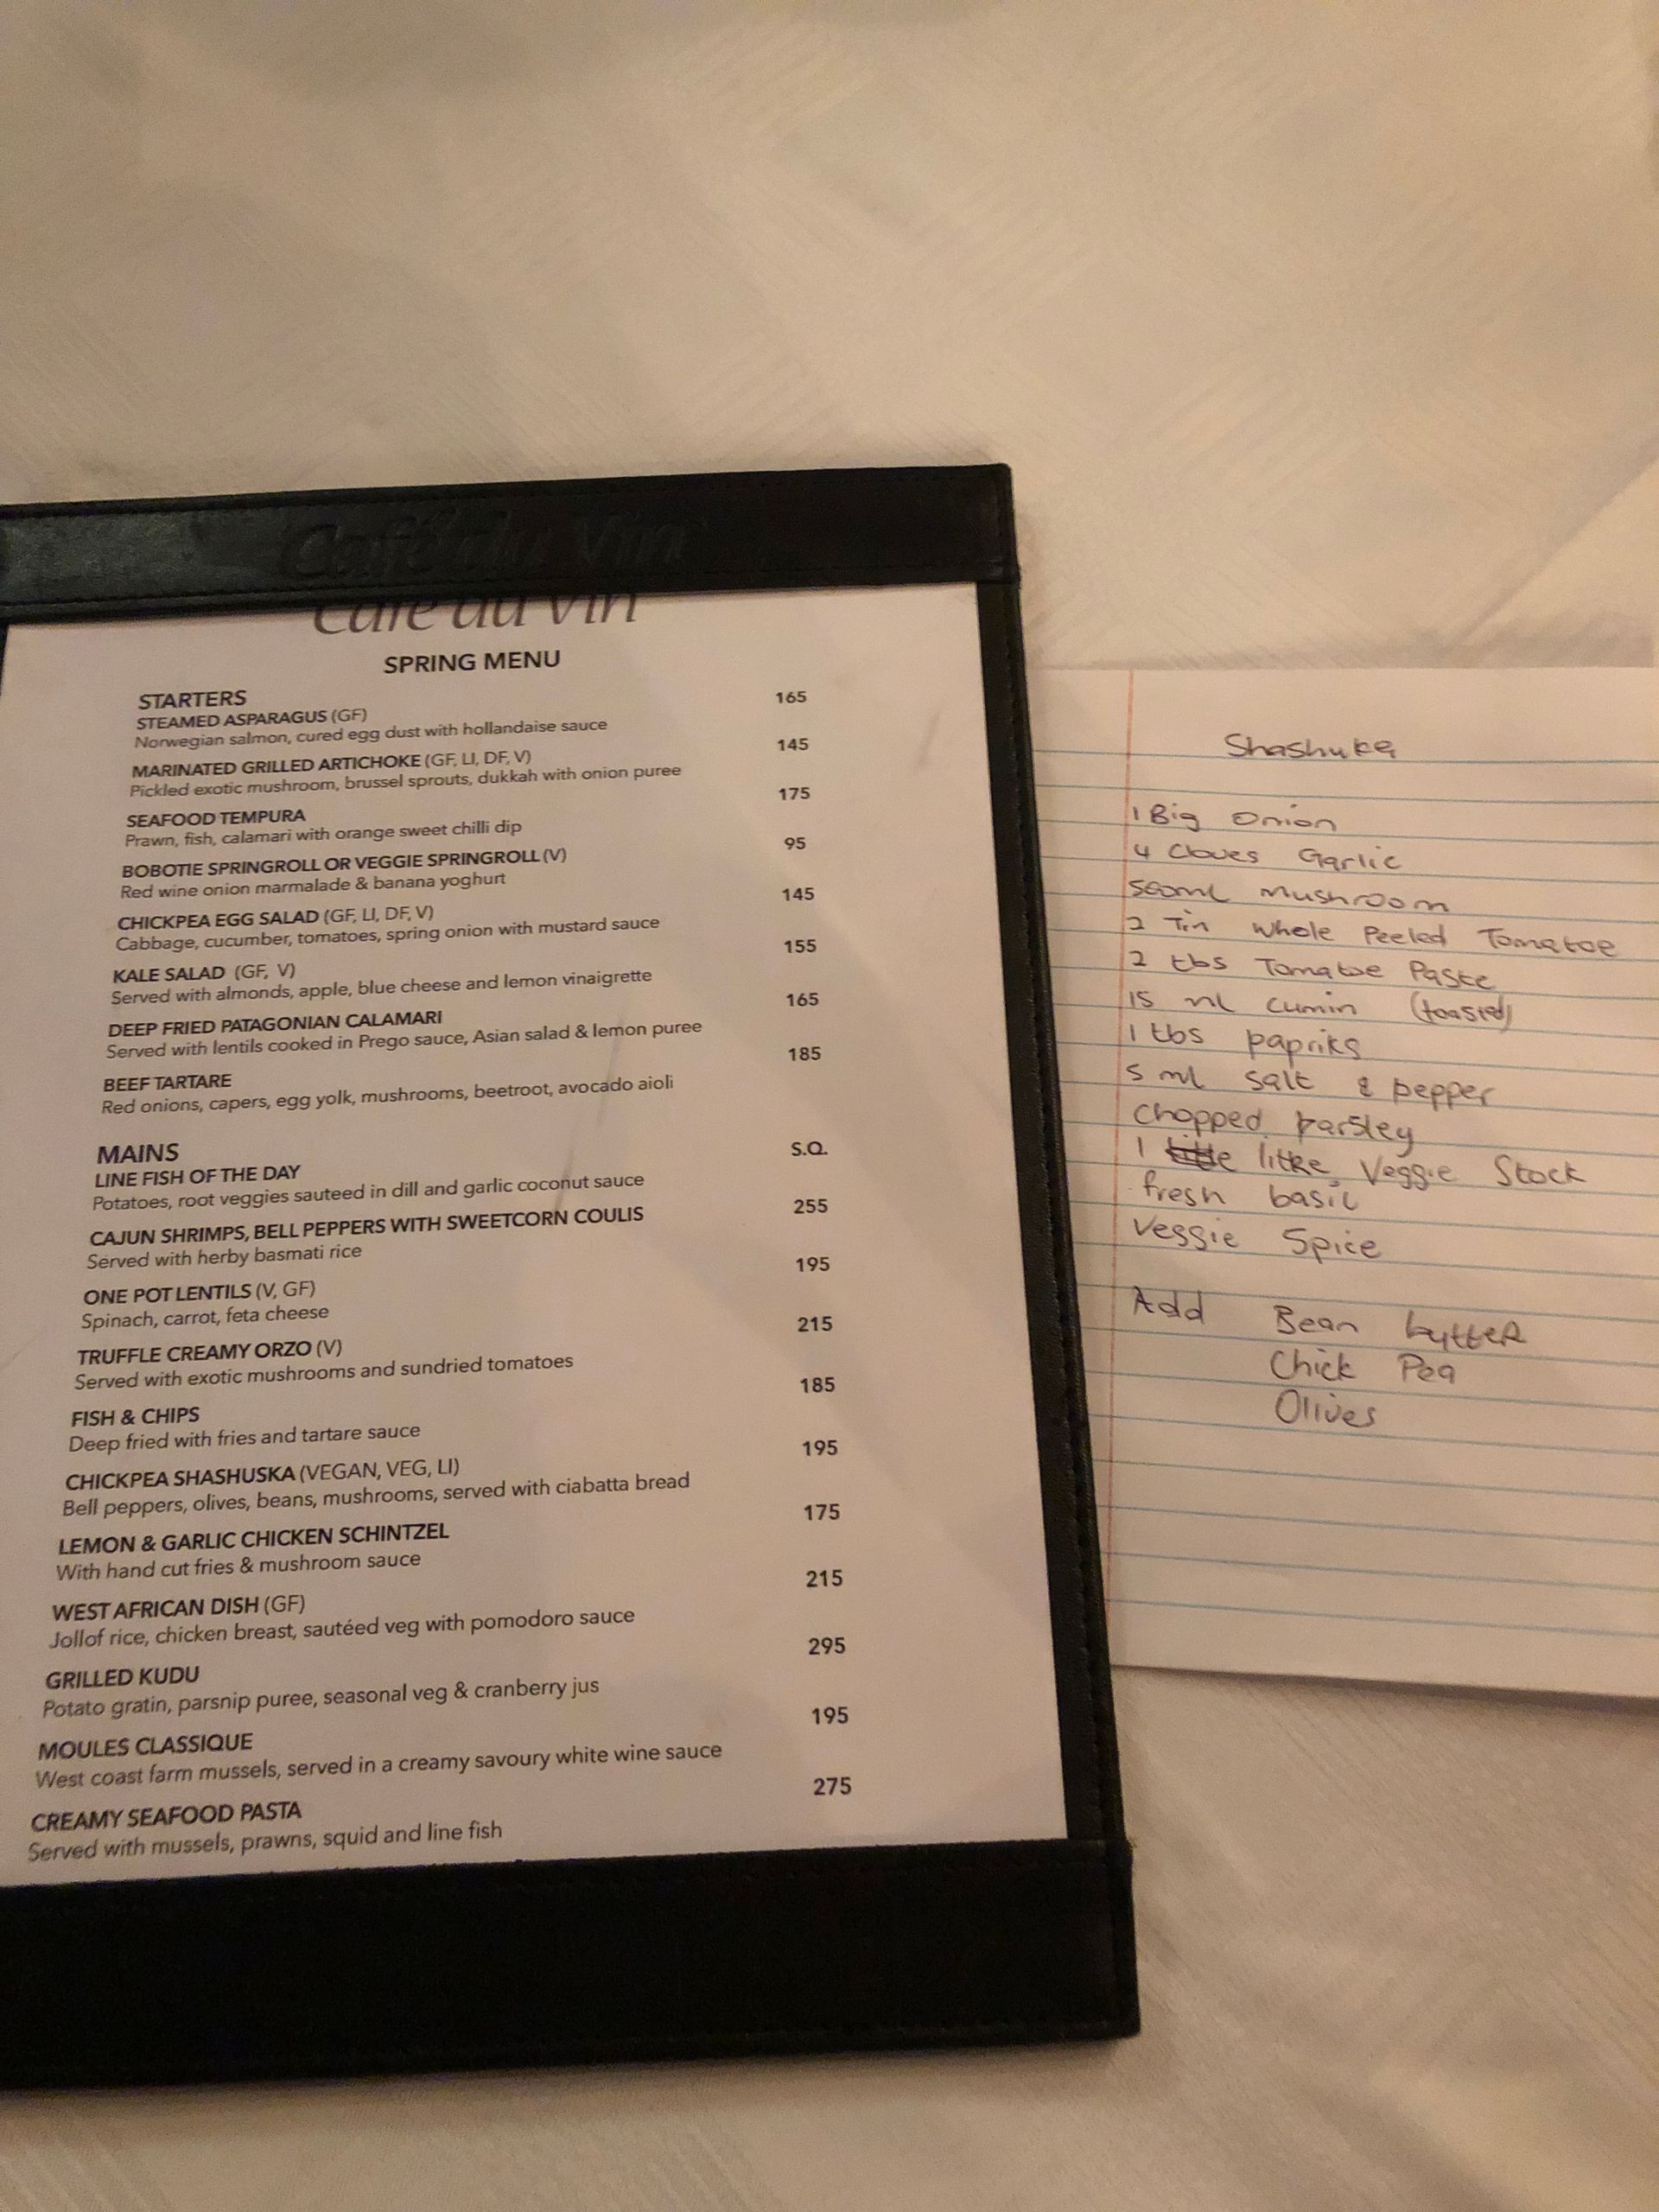 Café du Vin
Café du Vin
SPRING MENU
STARTERS
STEAMED ASPARAGUS (GF) 165
Norwegian salmon, cured egg dust with hollandaise sauce
MARINATED GRILLED ARTICHOKE (GF, LI, DF, V) 145
Pickled exotic mushroom, brussel sprouts, dukkah with onion puree
SEAFOOD TEMPURA 175
Prawn, fish, calamari with orange sweet chilli dip
BOBOTIE SPRINGROLL OR VEGGIE SPRINGROLL (V) 95
Red wine onion marmalade & banana yoghurt
CHICKPEA EGG SALAD (GF, LI, DF, V) 145
Cabbage, cucumber, tomatoes, spring onion with mustard sauce
KALE SALAD (GF, V) 155
Served with almonds, apple, blue cheese and lemon vinaigrette
DEEP FRIED PATAGONIAN CALAMARI 165
Served with lentils cooked in Prego sauce, Asian salad & lemon puree
BEEF TARTARE 185
Red onions, capers, egg yolk, mushrooms, beetroot, avocado aioli
MAINS
LINE FISH OF THE DAY S.Q.
Potatoes, root veggies sauteed in dill and garlic coconut sauce
CAJUN SHRIMPS, BELL PEPPERS WITH SWEETCORN COULIS 255
Served with herby basmati rice
ONE POT LENTILS (V, GF) 195
Spinach, carrot, feta cheese
TRUFFLE CREAMY ORZO (V) 215
Served with exotic mushrooms and sundried tomatoes
FISH & CHIPS 185
Deep fried with fries and tartare sauce
CHICKPEA SHASHUSKA (VEGAN, VEG, LI) 195
Bell peppers, olives, beans, mushrooms, served with ciabatta bread
LEMON & GARLIC CHICKEN SCHINTZEL 175
With hand cut fries & mushroom sauce
WEST AFRICAN DISH (GF) 215
Jollof rice, chicken breast, sautéed veg with pomodoro sauce
GRILLED KUDU 295
Potato gratin, parsnip puree, seasonal veg & cranberry jus
MOULES CLASSIQUE 195
West coast farm mussels, served in a creamy savoury white wine sauce
CREAMY SEAFOOD PASTA 275
Served with mussels, prawns, squid and line fish
Shashuka
1 Big Onion
4 Cloves Garlic
500ml Mushroom
2 Tin Whole Peeled Tomatoe
2 tbs Tomatoe Paste
15 ml Cumin (toasted)
1 tbs paprika
5 ml salt & pepper
Chopped parsley
1 litre Veggie Stock
fresh basil
Veggie Spice
Add Bean butter
Chick Pea
Olives